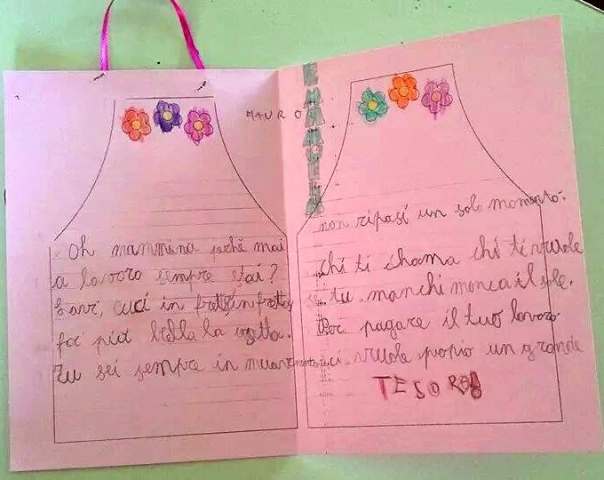 MAURO
Oh mammina pchè mai
a lavoro sempre stai?
Lavi, cuci in fretta in fretta
fai più bella la
Tu sei sempre in
non riposi un solo momento.
chi ti chama chi ti vuole
se tu manchi manca il sole.
Per pagare il tuo lavoro
ci vuole propio un grande
TESORO!